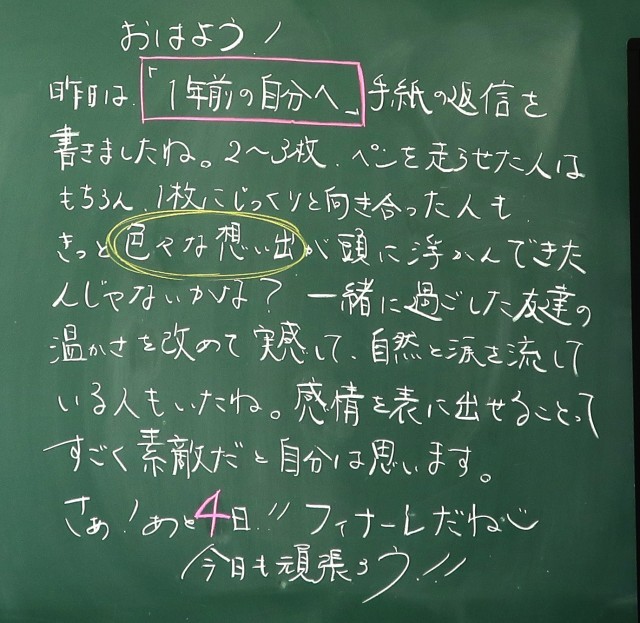 おはよう!
昨日は、「1年前の自分へ」手紙の返信を
書きましたね。2〜3枚、ペンを走らせた人は
もちろん、1枚にじっくりと向き合った人も、
きっと色々な想い出が頭に浮かんできた
んじゃないかな? 一緒に過ごした友達の
温かさを改めて実感して、自然と涙を流して
いる人もいたね。感情を表に出せることって
すごく素敵だと自分は思います。
さぁ!あと4日!!フィナーレだね
今日も頑張ろう!!